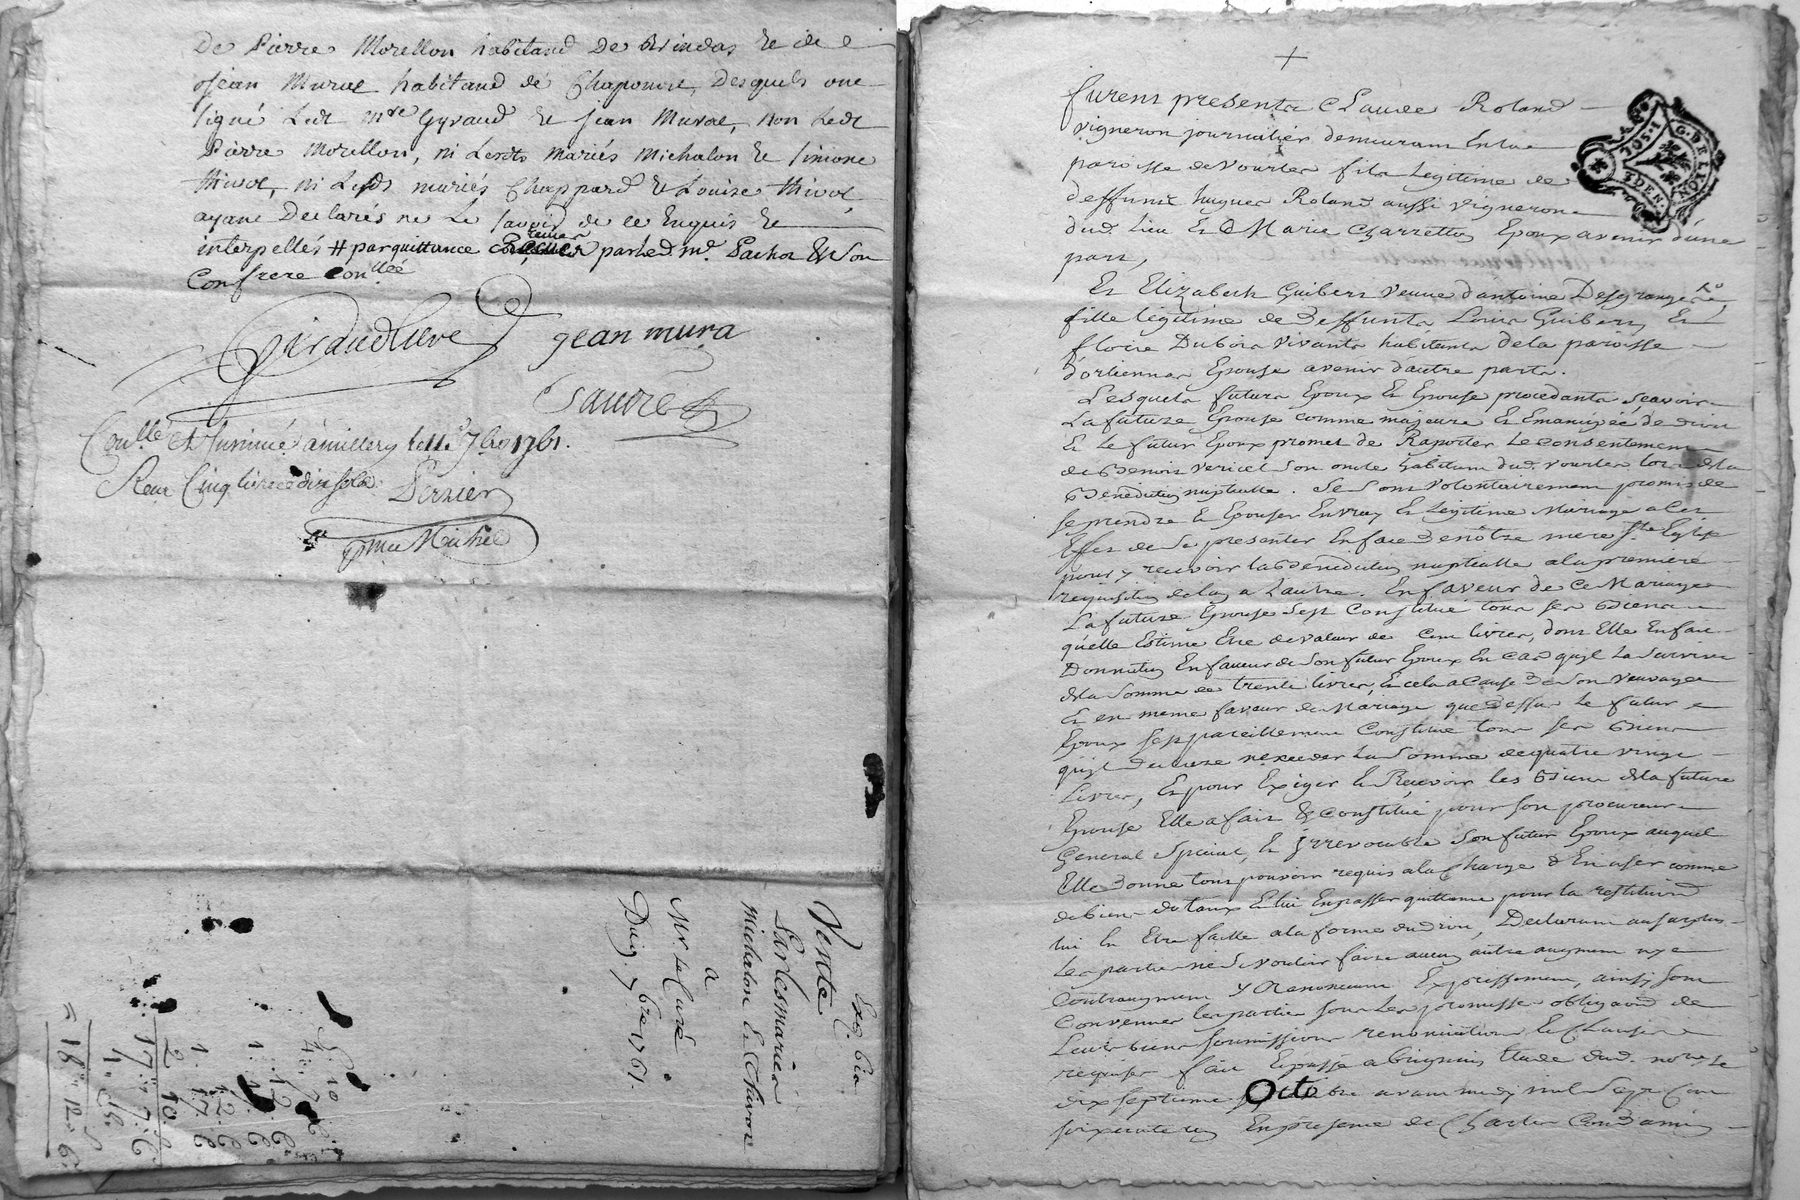 De Pierre Morellon habitand De Brindas Et de
Jean Murat habitand de Chaponost, Desquels one
signé Ledt mre Gyraud Et Jean Murat, Non Ledt
Pierre Morellon, ni Lesdts Mariés Michalon Et Simone
thivot, ni Lesds mariés Chappard Et Louise thivot
ayant Declarés ne Le savoir de ce Enquis Et
interpellés # par quittance par led. mr. Pachot & son
Confrere Conllée
Giraudluere jean mura
Sauvré
Conllé Et Insinué à millery le 11e 7bre 1761.
Recu Cinq livres dix sols
Pernier
pmee Michel
Exp. bis
Vente
Par les mariés
Michalon Et Thivot
a
Mr Le Curé
Du 7bre 1761
furent presents Claude Roland
vigneron journalier demeurant En la
paroisse de vourles fils Legitime de
deffunt hugues Roland aussi vigneron
dud. Lieu Et Marie Charretton Epoux avenir d'une
part,
Et Elizabeth Guibert Veuve d'antoine Desgranges
fille legitime de deffunts Louis Guibert Et
floris Dubois vivants habitants de la paroisse
d'orliennas Epouse avenir d'autre part.
Lesquels futurs Epoux Et Epouse procedants scavoir
La future Epouse comme majeure Et Emancipée de droit
Et Le futur Epoux promet de Raporter Le consentement
de Benoit Vericel son oncle habitant dud. vourles lors de la
Benediction nuptialle. Se sont volontairement promis de
se prendre Et Epouser En vray Et Legitime Mariage a Ces
Effet de se presenter En face de nôtre mere Ste Eglise
pour y recevoir la Benediction nuptialle a la premiere
requisition de lun a Lautre. En faveur de Ce Mariage
La future Epouse sest Constitué tous ses Biens
qu'elle Estime Etre de valeur de Cent livres, dont Elle En fait
Donnation En faveur de Son futur Epoux En cas quil La survive
de la somme de trente livres, Et cela a Cause de son veuvage
Et en meme faveur de Mariage que dessus Le futur
Epoux sest pareillement Constitué tous ses Biens
quil declare nexceder La Somme de quatre vingt
Livres, Et pour Exiger Et Recevoir les Biens de la future
Epouse Elle a fait & constitué pour son procureur
General special, Et jrrevocable Son futur Epoux auquel
Elle Donne tous pouvoir requis a la Charge d'En user comme
de biens dotaux Et lui En passer quittance pour la restitution
lui En Etre faitte a la forme du droit, Declarant au surplus
Les parties ne se vouloir faire aucun autre augment ny
Contraugment y Renoncant Expressement, ainsy sont
Convenues les parties sous Les promesses obligaon de
Leurs biens soumissions renonciations Et Clauses
requises fait Et passé a Brignais Etude dud. notre le
dix septieme Octobre avant midy mil sept Cent
soixante En presence de Charles Condamin